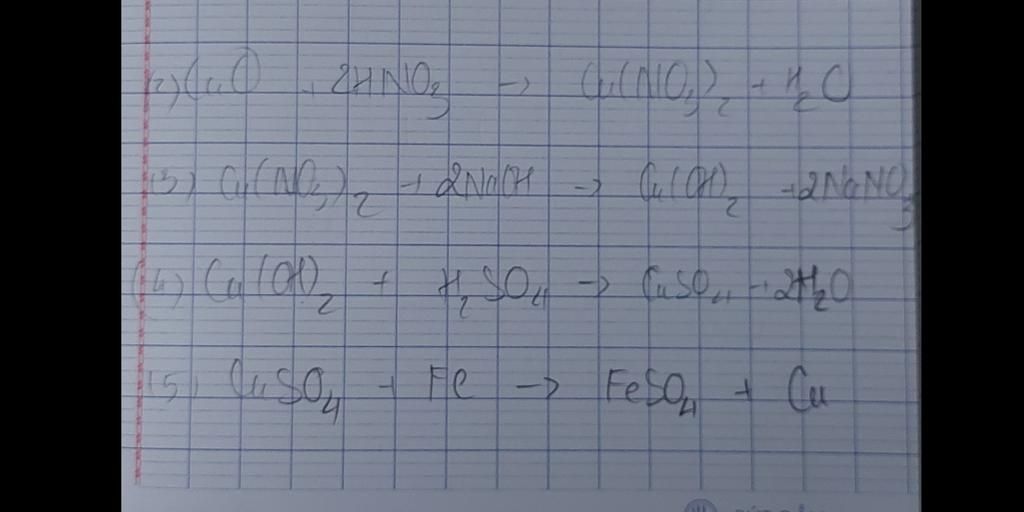 (2) CuO + 2HNO3 → Cu(NO3)2 + H2O
(3) Cu(NO3)2 + 2NaOH → Cu(OH)2 + 2NaNO3
(4) Cu(OH)2 + H2SO4 → CuSO4 + 2H2O
(5) CuSO4 + Fe → FeSO4 + Cu